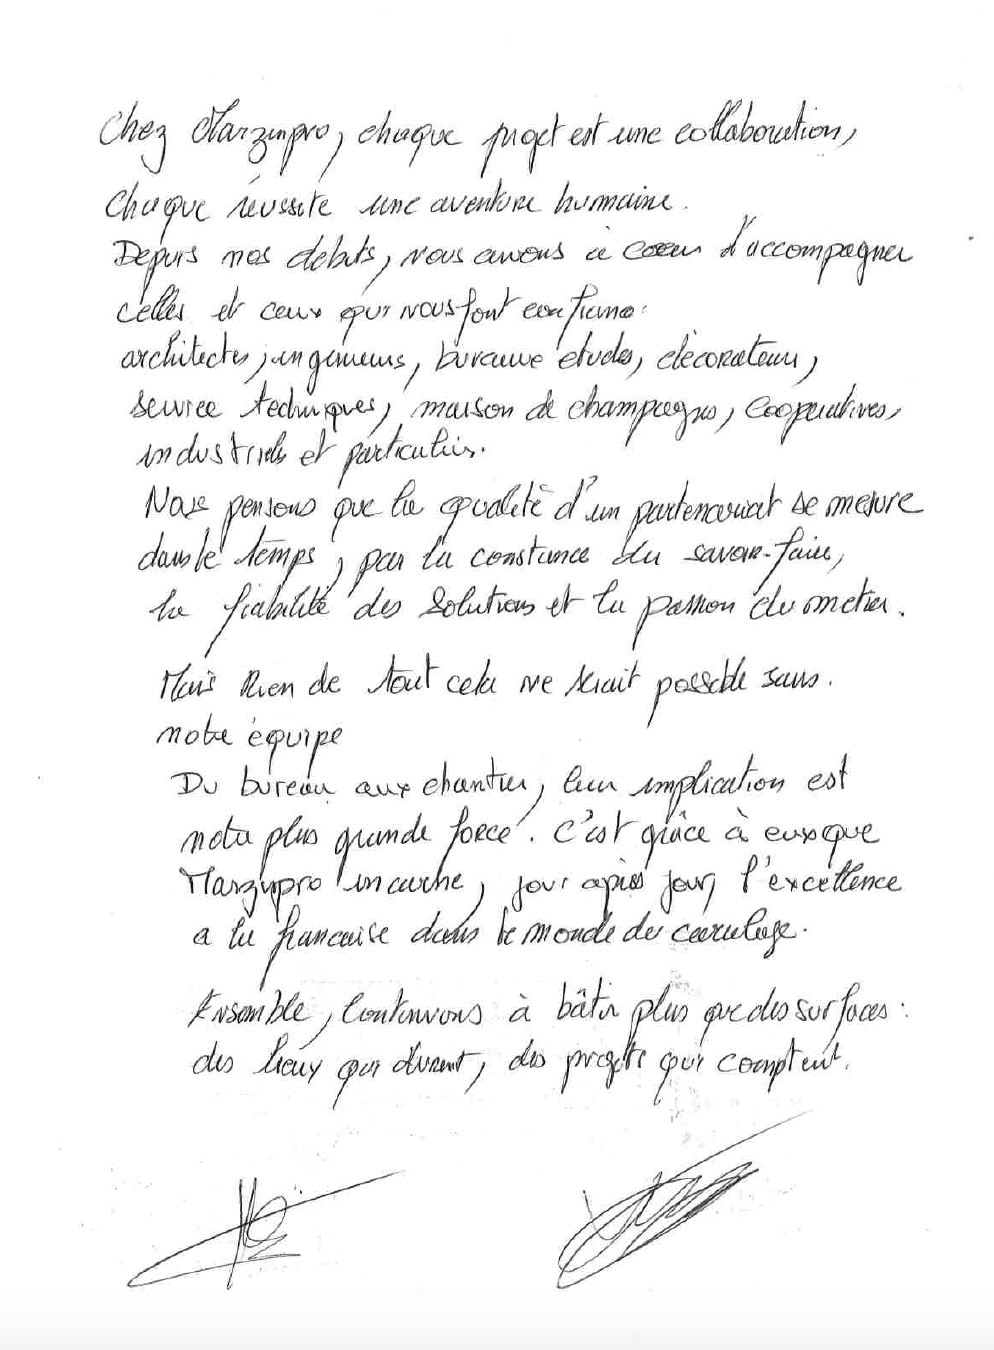 Chez Marzinpro, chaque projet est une collaboration,
Chaque réussite une aventure humaine.
Depuis nos débuts, nous avons à cœur d'accompagner
celles et ceux qui nous font confiance:
architectes, ingénieurs, bureaux études, décorateurs,
service techniques, maison de champagnes, coopératives,
industriels et particuliers.
Nous pensons que la qualité d'un partenariat se mesure
dans le temps, par la constance du savoir-faire,
la fiabilité des solutions et la passion du métier.
Mais Rien de tout cela ne serait possible sans.
notre équipe
Du bureau aux chantier, leur implication est
notre plus grande force. C'est grâce à eux que
Marzinpro incarne, jour après jour, l'excellence
a la francaise dans le monde du carrelage.
Ensemble, Continuons à bâtir plus que des surfaces:
des lieux qui durent, des projets qui comptent.